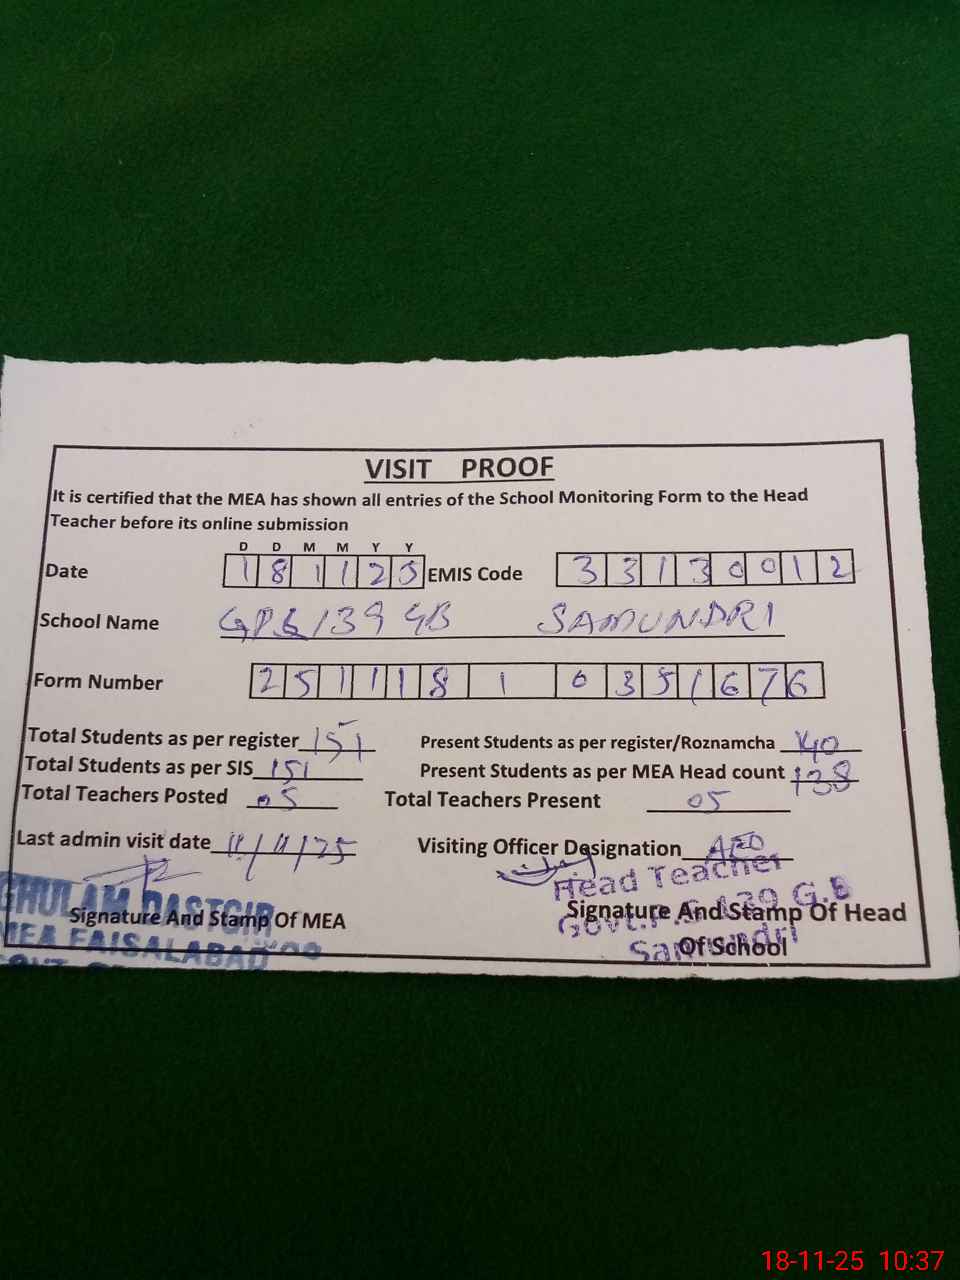 VISIT PROOF
It is certified that the MEA has shown all entries of the School Monitoring Form to the Head
Teacher before its online submission
D D M M Y Y
Date 1 8 1 1 2 5 EMIS Code 3 3 1 3 0 0 1 2
School Name GPS 139 GB SAMUNDRI
Form Number 2 5 1 1 1 8 1 0 3 5 1 6 7 6
Total Students as per register 151 Present Students as per register/Roznamcha 140
Total Students as per SIS 151 Present Students as per MEA Head count 138
Total Teachers Posted 05 Total Teachers Present 05
Last admin visit date 11/11/25 Visiting Officer Designation AEO
Head Teacher
GHULAM DASTGIR
Signature And Stamp Of MEA Signature And Stamp Of Head
Govt. P.S 139 G.B
MEA FAISALABAD
Samundri
Of School
18-11-25 10:37